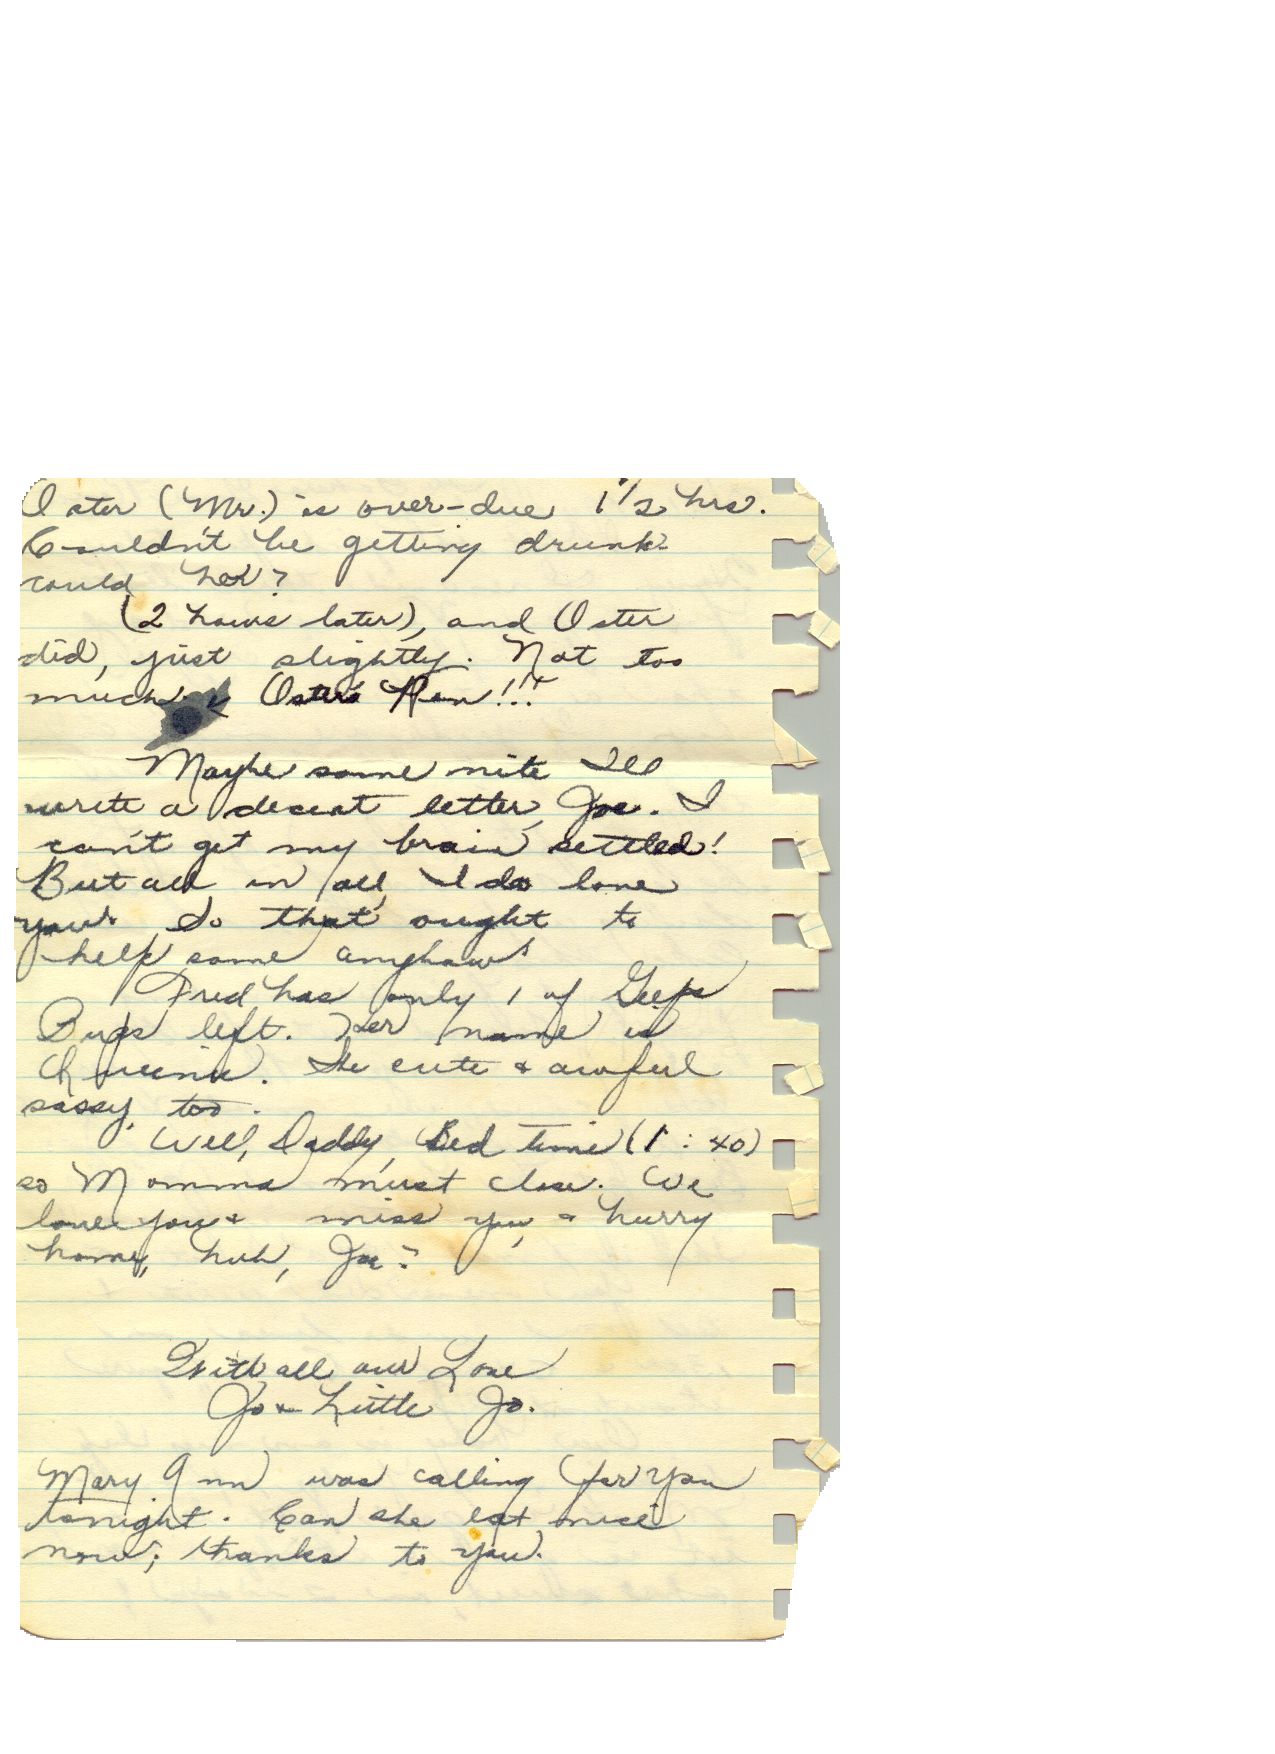 Oster (Mr.) is over-due 1 1/2 hrs.
Couldn't be getting drunk
could he?
(2 hours later), and Oster
did, just slightly. Not too
much. Oster's Pen!!!
Maybe some nite I'll
write a decent letter, Joe. I
can't get my brain settled!
But all in all, I do love
you. So that ought to
help some anyhow!
Fred has only 1 of Geep's
Pups left. Her name is
She cute & awful
sassy, too.
Well, Daddy, Bed time (1:40)
so Momma must close. We
love you & miss you, & hurry
home, huh, Joe?
With all our Love
Jo & Little Jo.
Mary Ann was calling for you
tonight. Can she eat nice
now; thanks to you.